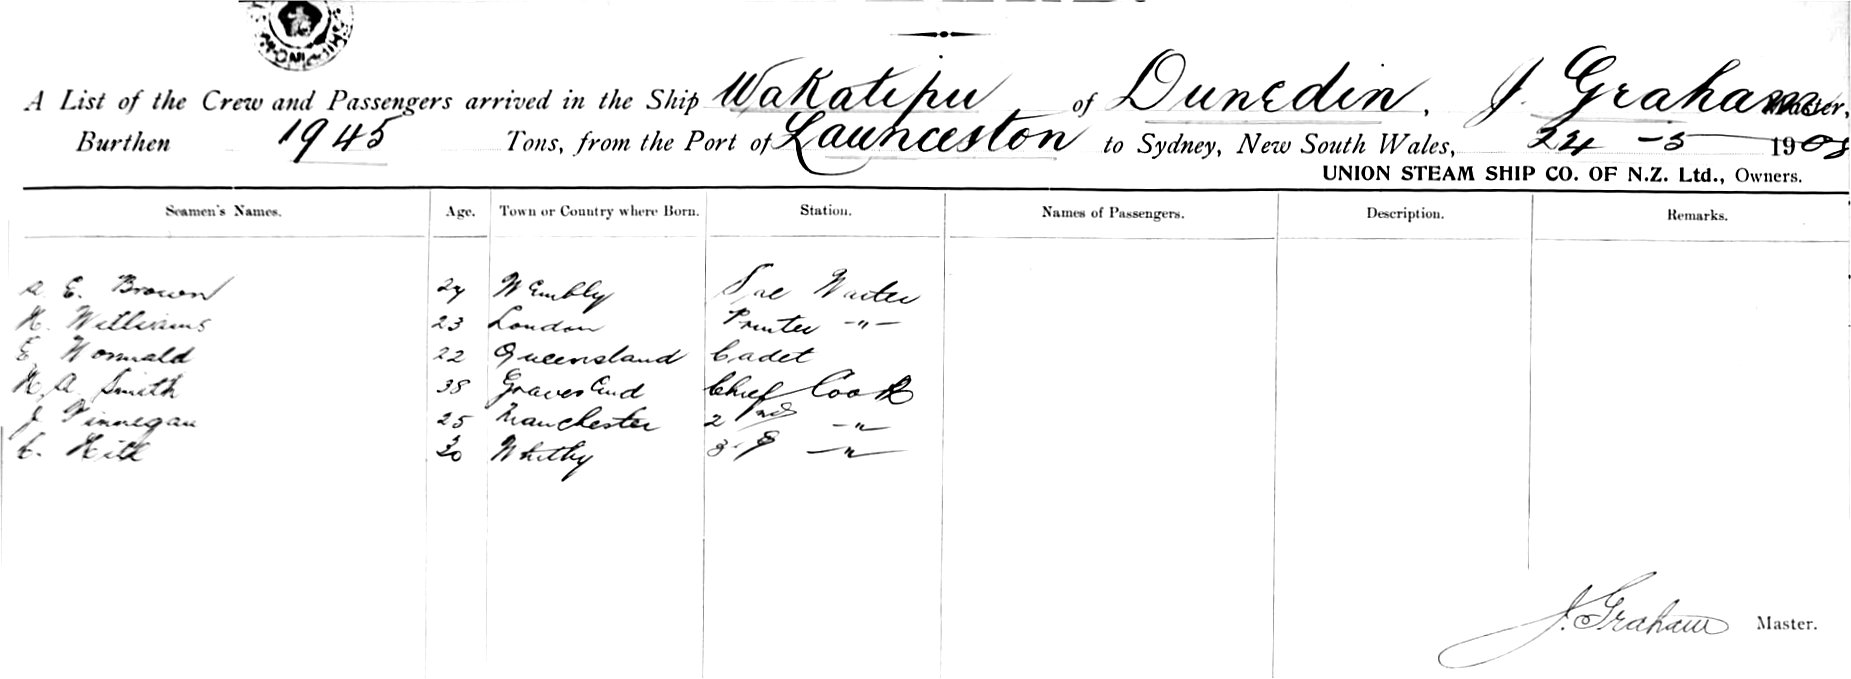 A List of the Crew and Passengers arrived in the Ship Wakatipu of Dunedin, J. Graham Master,
Burthen 1945 Tons, from the Port of Launceston to Sydney, New South Wales, 24-5 1908
UNION STEAM SHIP CO. OF N.Z. Ltd., Owners.
Seamen's Names. Age. Town or Country where Born. Station. Names of Passengers. Description. Remarks.
E. Brown 24 Wembly Waiter
H. Williams 23 London -"-
E Wormald 22 Queensland Cadet
H. A. Smith 38 Graves End Chief Cook
J Finnegan 25 Manchester 2nd -"-
C. Hill 30 Whitby 3rd -"-
J. Graham Master.